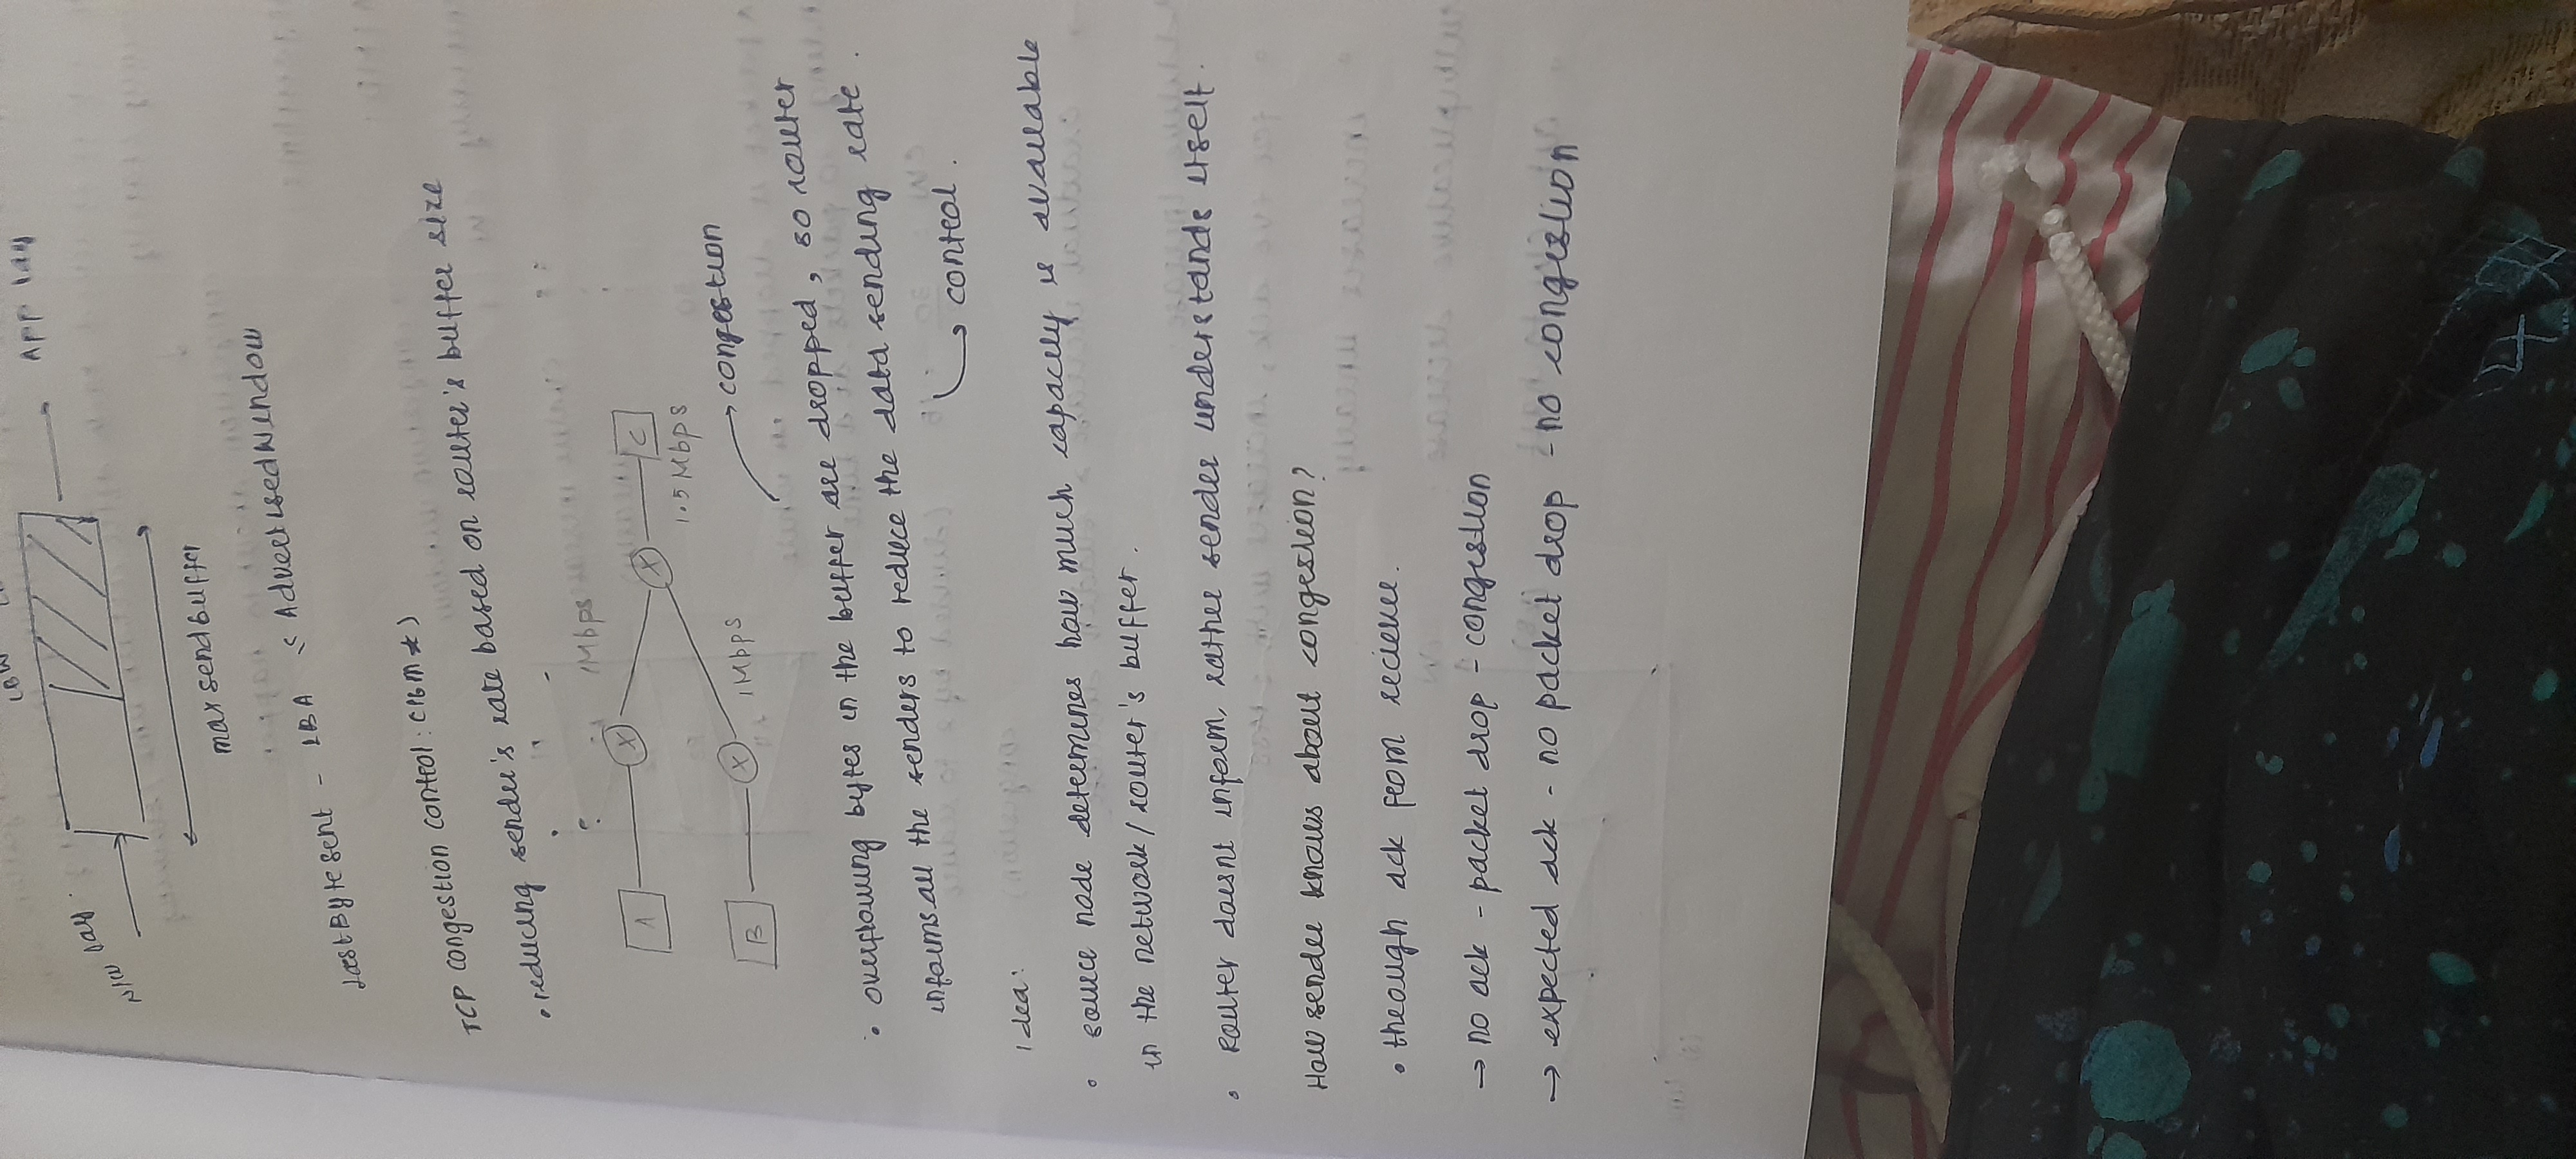 LBW
App lay
N/W lay.
max sendbuffer
LastByte sent - LBA ≤ AdvertisedWindow
TCP congestion control: (16m *)
• reducing sender's rate based on router's buffer size
1Mbps
A
X
X
C
1.5Mbps
B
X
1Mbps
congestion
• overflowing bytes in the buffer are dropped, so router
informs all the senders to reduce the data sending rate.
control.
Idea:
• source node determines how much capacity is available
in the network/router's buffer.
• Router doesnt inform, rather sender understands itself.
How sender knows about congestion?
• through ack from reciever.
→ no ack - packet drop - congestion
→ expected ack - no packet drop - no congestion